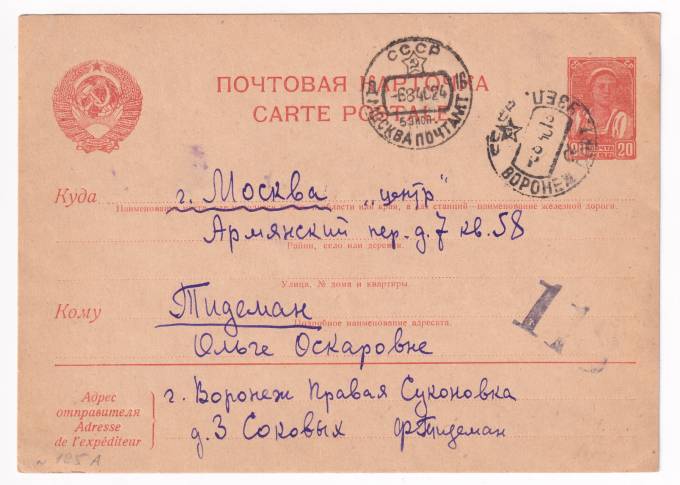 СССР
МОСКВА ПОЧТАМТ
ПОЧТОВАЯ КАРТОЧКА
CARTE POSTALE
ВОРОНЕЖ
20 ПОЧТА 20
Куда
г. Москва „центр"
Наименование
области или края, а для станций—наименование железной дороги.
Армянский пер. д. 7 кв. 58
Район, село или деревня.
Улица, № дома и квартиры.
Кому
Тидеман
Подробное наименование адресата.
Ольге Оскаровне
Адрес
отправителя
Adresse
de l'expéditeur
г. Воронеж Правая Суконовка
д. 3 Соковых Ф Тидеман